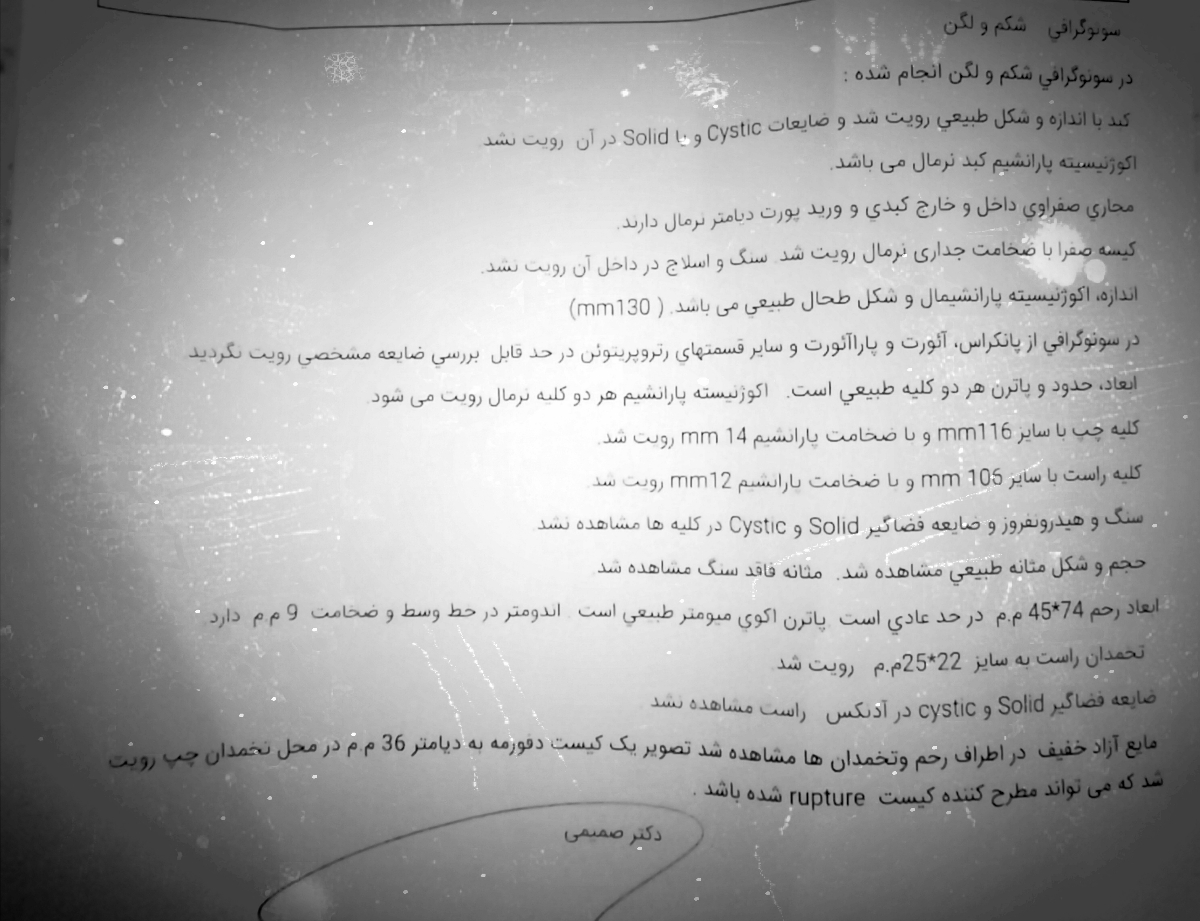 سونوگرافي شکم و لگن
در سونوگرافي شکم و لگن انجام شده :
کبد با اندازه و شکل طبیعي رویت شد و ضایعات Cystic و یا Solid در آن رویت نشد
اکوژنیسیته پارانشیم کبد نرمال می باشد.
مجاري صفراوي داخل و خارج کبدي و ورید پورت دیامتر نرمال دارند.
کیسه صفرا با ضخامت جداری نرمال رویت شد. سنگ و اسلاج در داخل آن رویت نشد.
اندازه، اکوژنیسیته پارانشیمال و شکل طحال طبیعي می باشد. ( mm130)
در سونوگرافي از پانکراس، آئورت و پاراآئورت و سایر قسمتهاي رتروپریتوئن در حد قابل بررسي ضایعه مشخصي رویت نگردید
ابعاد، حدود و پاترن هر دو کلیه طبیعي است. اکوژنیسته پارانشیم هر دو کلیه نرمال رویت می شود.
کلیه چپ با سایز mm116 و با ضخامت پارانشیم 14 mm رویت شد.
کلیه راست با سایز 105 mm و با ضخامت پارانشیم mm12 رویت شد.
سنگ و هیدرونفروز و ضایعه فضاگیر Solid و Cystic در کلیه ها مشاهده نشد
حجم و شکل مثانه طبیعي مشاهده شد. مثانه فاقد سنگ مشاهده شد
ابعاد رحم 74*45 م.م در حد عادي است. پاترن اکوي میومتر طبیعي است. اندومتر در خط وسط و ضخامت 9 م.م دارد.
تخمدان راست به سایز 22*25م.م رویت شد
ضایعه فضاگیر Solid و cystic در آدنکس راست مشاهده نشد.
مایع آزاد خفیف در اطراف رحم وتخمدان ها مشاهده شد تصویر یک کیست دفورمه به دیامتر 36 م.م در محل تخمدان چپ رویت
شد که می تواند مطرح کننده کیست rupture شده باشد .
دکتر صمیمی